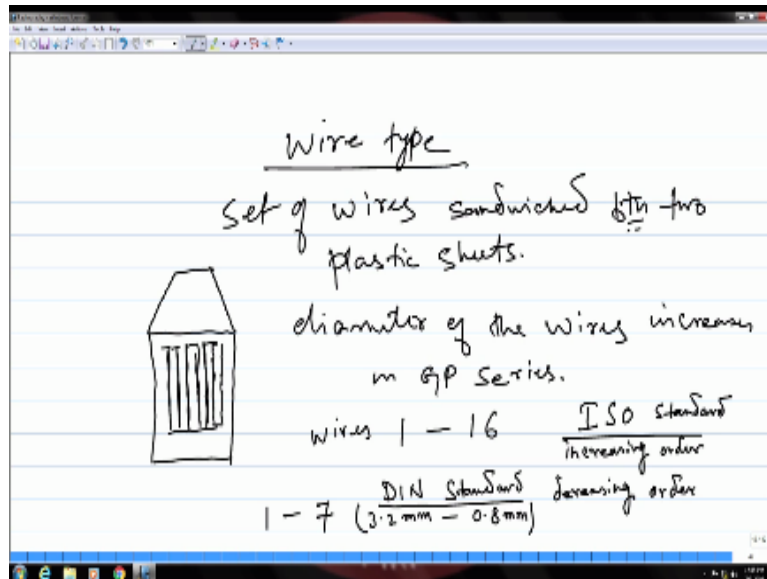 Wire type
Set of wires sandwiched btn two
plastic sheets.
diameter of the wires increases
in GP series.
wires 1 – 16 ISO Standard
increasing order
1 – 7 DIN Standard decreasing order
(3.2 mm – 0.8 mm)